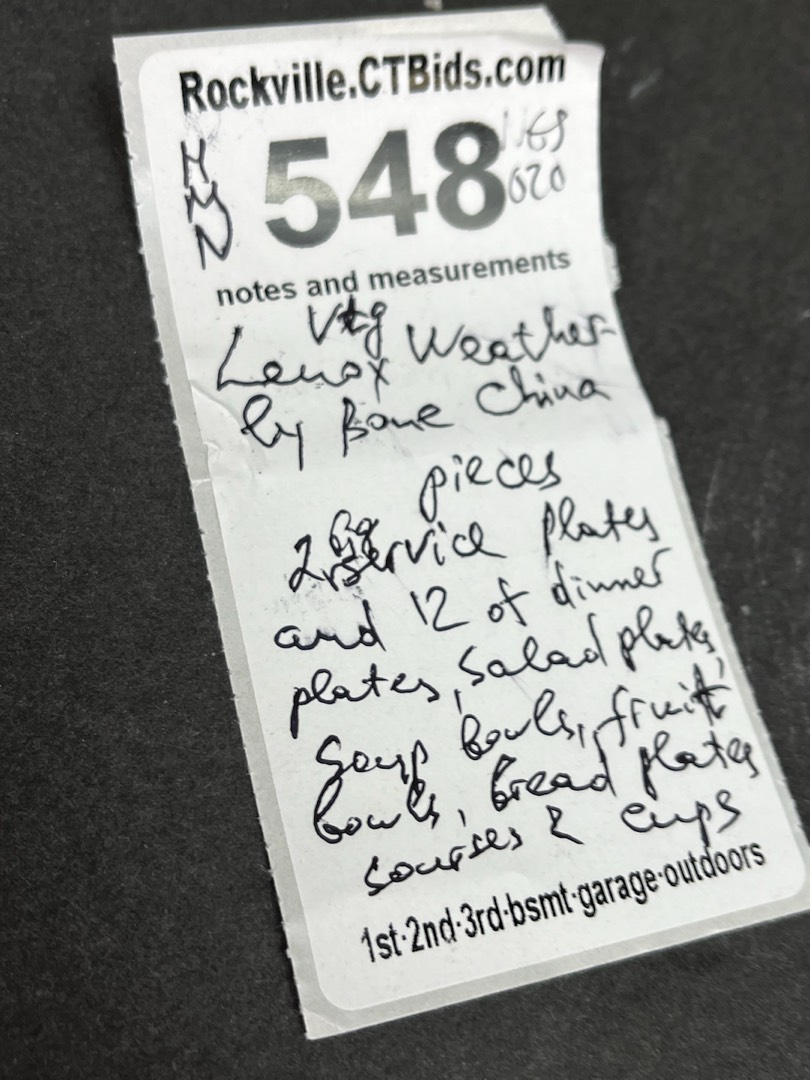 Rockville.CTBids.com
HMN
548
020
notes and measurements
Vtg
Lenox Weather-
by Bone China
pieces
2 service plates
and 12 of dinner
plates, salad plates,
soup bowls, fruit
bowls, bread plates
sourses & cups
1st·2nd·3rd·bsmt·garage·outdoors